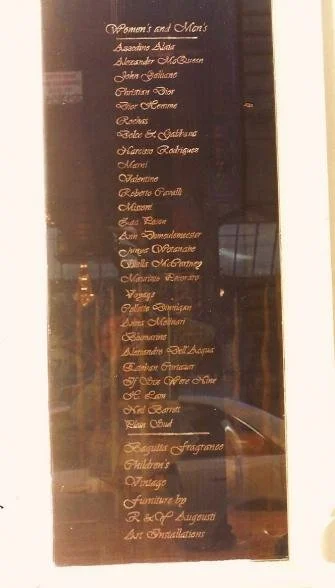 Women's and Men's
Azzedine Alaia
Alexander McQueen
John Galliano
Christian Dior
Dior Homme
Rochas
Dolce & Gabbana
Narciso Rodriguez
Marni
Valentino
Roberto Cavalli
Missoni
Zac Posen
Ann Demeulemeester
Junya Watanabe
Stella McCartney
Maurizio Pecoraro
Voyage
Collette Dinnigan
Anna Molinari
Blumarine
Alessandro Dell'Acqua
Esteban Cortazar
If Six Were Nine
K. Lam
Neil Barrett
Plein Sud
Bagutta Fragrance
Children's
Vintage
Furniture by
R & Y Augousti
Art Installations